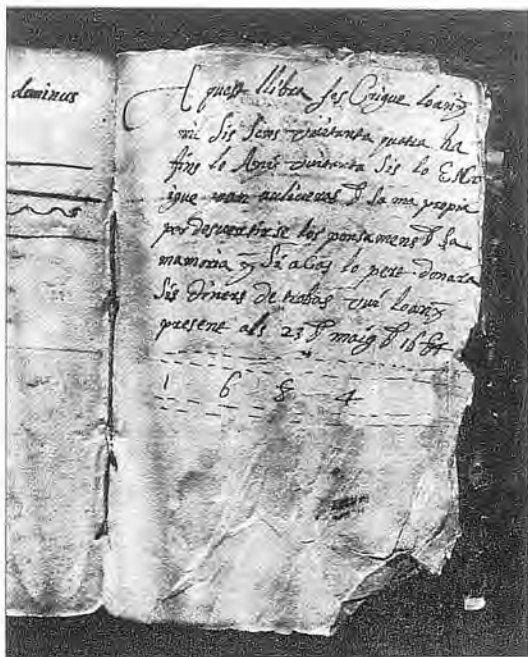 dominus
quest llibre fes Crigue loany
mil sis sens vuitanta quatra ha
fins lo Anÿ vuitanta sis lo Escri
igue Joan auliveras de sa ma propia
per desvertirse los pensamens de sa
memoria y si a Cas lo pert donara
sis diners de trobas vuí loany
present als 23 de maig de 1684
1 6 8 4